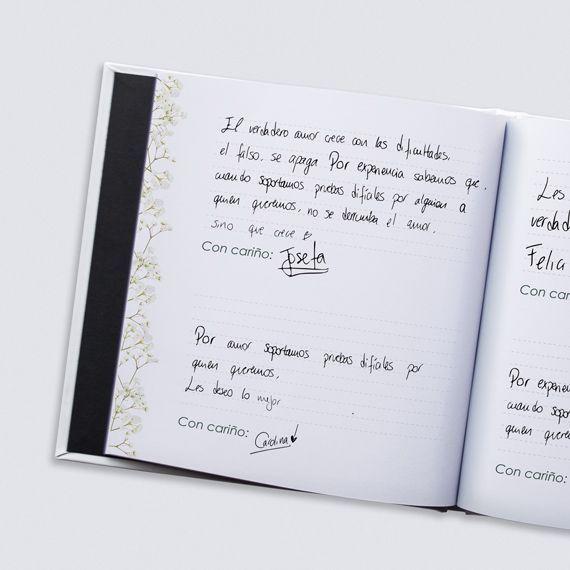 El verdadero amor crece con las dificultades,
el falso, se apaga Por experiencia sabemos que,
cuando soportamos pruebas difíciles por alguien a
quien queremos, no se derrumba el amor,
sino que crece
Con cariño: Josefa
Por amor soportamos pruebas difíciles por
quien queremos,
Les deseo lo mejor
Con cariño: Carolina
Les
verdad
Felic
Con car
Por experien
cuando sopor
quien querem
Con cariño: